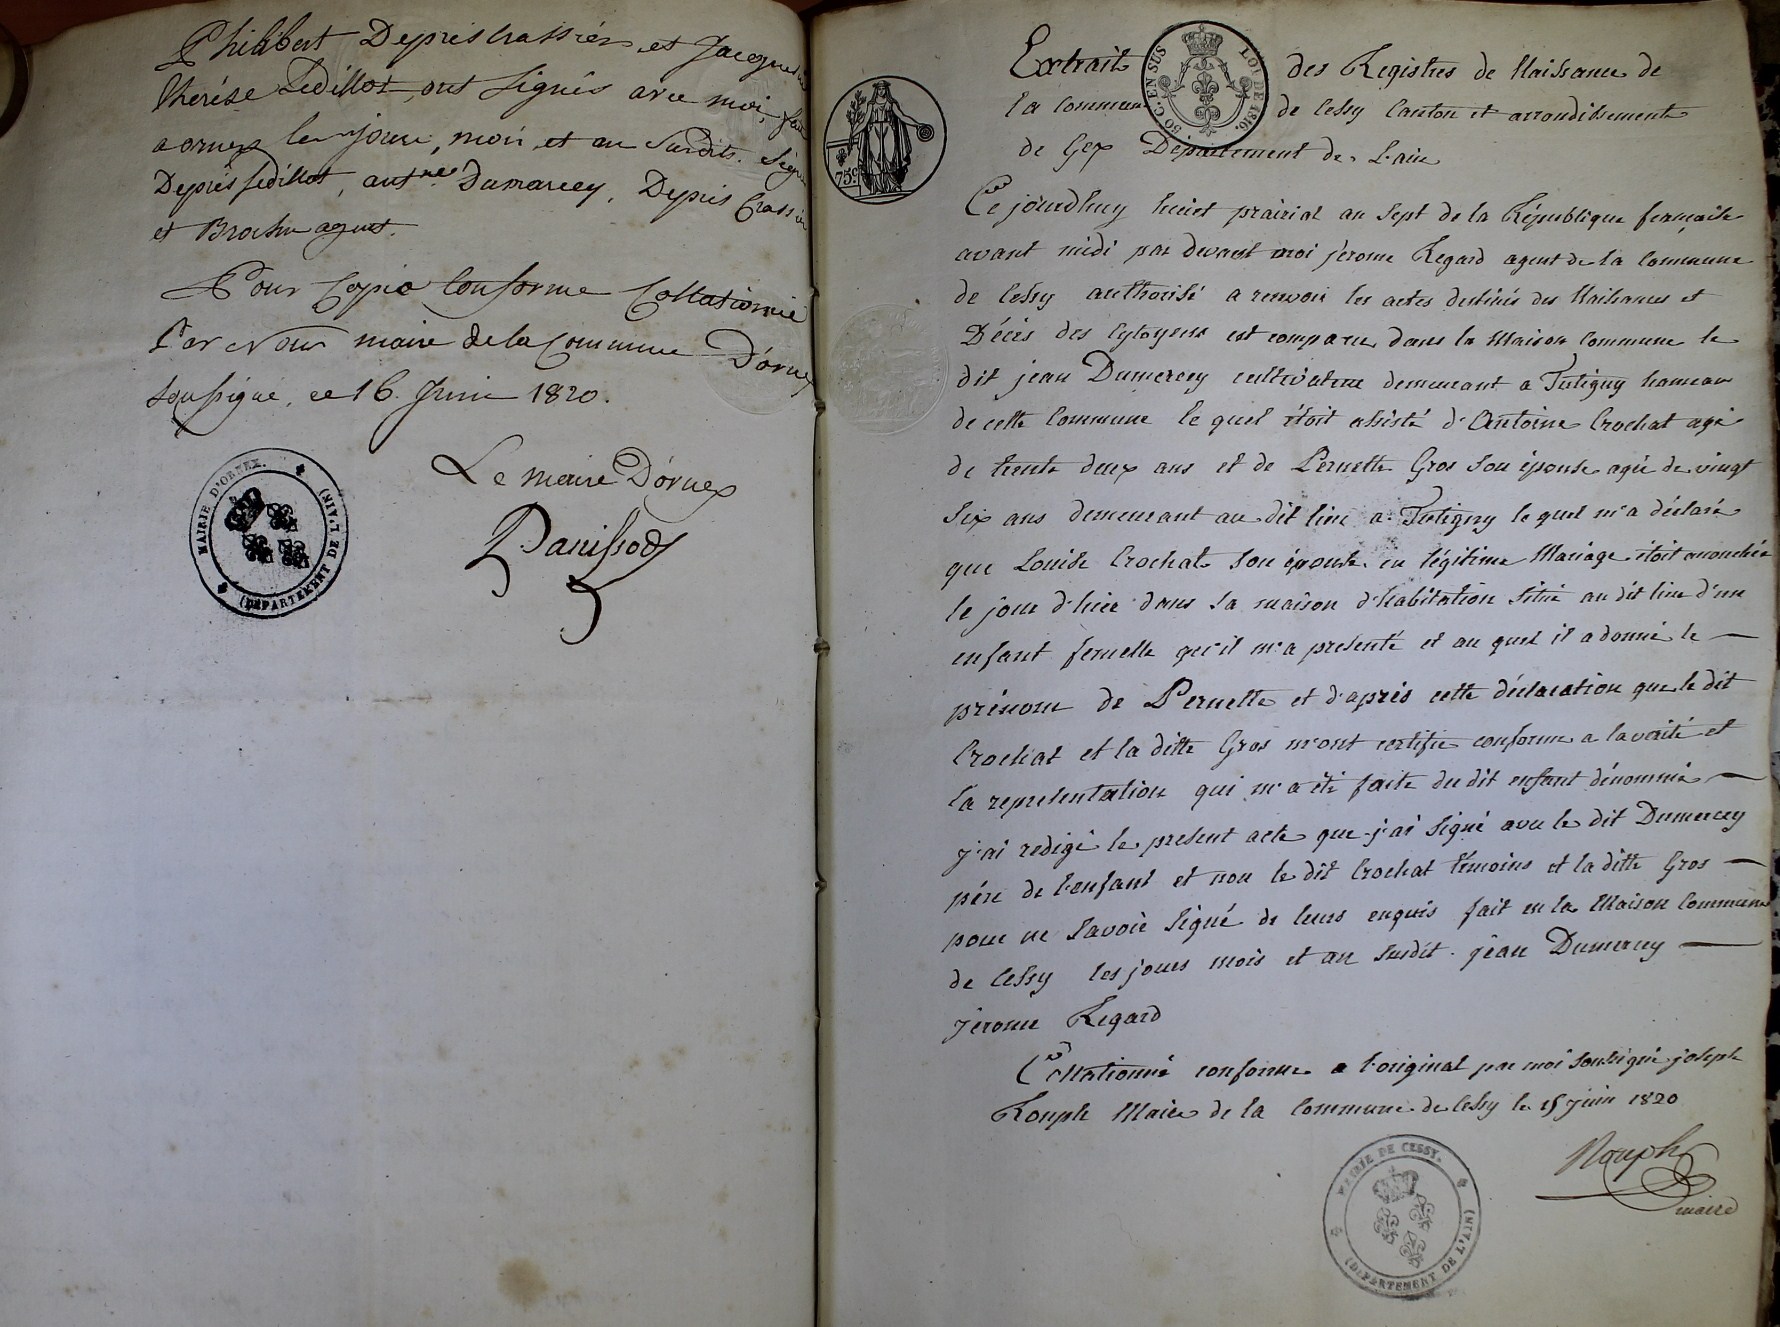 Philibert Depris Crassier et Jacque
thérèse Sedillot, ont signés avec moi, fait
a ornex les jour, mois et an Susdits. Signé
Depris Sedillot, ant.ne Dumarcey, Depris Crassier
et Brochu agent.
Pour Copie Conforme Collationnée
Par Nous maire de la Commune D'ornex
soussigné, ce 16. Juin 1820.
Le maire D'ornex
Panissod
MAIRIE D'ORNEX.
(DÉPARTEMENT DE L'AIN)
75c
50 C. EN SUS
LOI DE 1816.
Extrait des Registres de Naissance de
la commune de Cessy Canton et arrondissement
de Gex Département de L'ain
Ce jourdhuy huict prairial an sept de la République française
avant midi par devant moi jérome Regard agent de la Commune
de Cessy authorisé a recevoir les actes destinés des Naissances et
Décès des Cytoyens est comparu dans la Maison Commune le
dit jean Dumercey cultivateur demeurant a Tutigny hameau
de cette Commune le quel étoit assisté d'Antoine Crochat agé
de trente deux ans et de Pernette Gros son épouse agée de vingt
six ans demeurant au dit lieu a Tutigny le quel m'a déclaré
que Louise Crochat son épouse en légitime Mariage étoit accouchée
le jour d'hier dans sa maison d'habitation située au dit lieu d'un
enfant femelle qu'il m'a presenté et au quel il a donné le
prénom de Pernette et d'après cette déclaration que le dit
Crochat et la ditte Gros m'ont certifié conforme a la vérité et
la representation qui m'a été faite du dit enfant dénommé
j'ai redigé le present acte que j'ai signé avec le dit Dumercey
père de l'enfant et non le dit Crochat témoins et la ditte Gros
pour ne savoir signé de leurs enquis fait en la Maison Commune
de Cessy les jours mois et an susdit. jean Dumercey
jérome Regard
Collationné conforme a l'original par moi soussigné joseph
Rouph Maire de la Commune de Cessy le 15 juin 1820
Rouph
maire
MAIRIE DE CESSY.
(DÉPARTEMENT DE L'AIN)